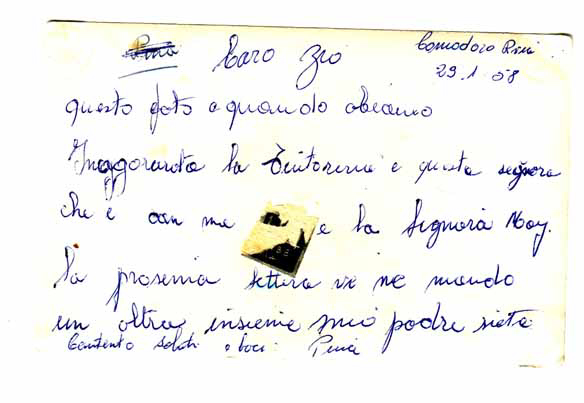 Comodoro Riva
29.1.58
Pina Caro Zio
questo foto a quando abiamo
Inaggorauta la Tintoreria e questa segnora
che è con me e la Signora Noy.
la prosima lettera ve ne mando
un oltra insieme mio padre sieta
Contento Saluti e baci Pina